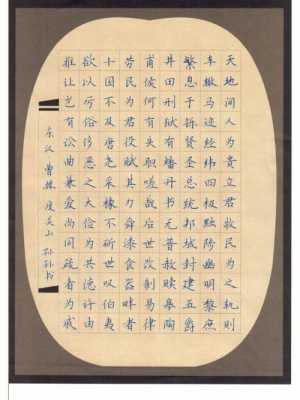 天地间人为贵立君牧民为之轨则
车辙马迹经纬四极黜陟幽明黎庶
繁息于铄贤圣总统邦域封建五爵
井田刑狱有燔丹书无普赦赎皋陶
甫侯何有失职嗟哉后世改制易律
劳民为君役赋其力舜漆食器畔者
十国不及唐尧采椽不斫世叹伯夷
欲以厉俗侈恶之大俭为共德许由
推让岂有讼曲兼爱尚同疏者为戚
东汉 曹操 度关山 书